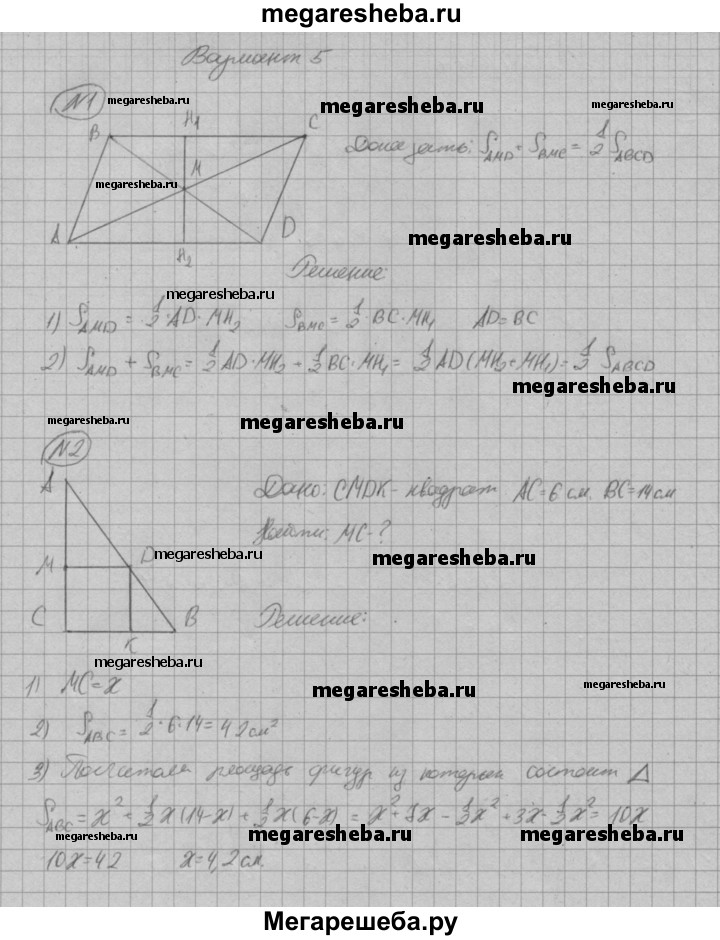 megaresheba.ru
Вариант 5
N1 megaresheba.ru
megaresheba.ru
megaresheba.ru
B H₁ C
Доказать: S_AMD + S_BMC = 1/2 S_ABCD
megaresheba.ru
M
A H₂ D
megaresheba.ru
Решение:
megaresheba.ru
1) S_AMD = 1/2 · AD · MH₂ S_BMC = 1/2 · BC · MH₁ AD = BC
2) S_AMD + S_BMC = 1/2 AD · MH₂ + 1/2 BC · MH₁ = 1/2 AD (MH₂ + MH₁) = 1/2 S_ABCD
megaresheba.ru
megaresheba.ru
megaresheba.ru
N2
A
Дано: CMDK - квадрат AC = 6 см. BC = 14 см
Найти: MC - ?
megaresheba.ru
megaresheba.ru
M D
C K B
Решение:
megaresheba.ru
megaresheba.ru
megaresheba.ru
1) MC = x
2) S_ABC = 1/2 · 6 · 14 = 42 см²
3) площадь фигур из которых состоит Δ
S_ABC = x² + 1/2 x (14 - x) + 1/2 x (6 - x) = x² + 7x - 1/2 x² + 3x - 1/2 x² = 10x
megaresheba.ru
megaresheba.ru
megaresheba.ru
10x = 42 x = 4,2 см.
Мегарешеба.ру